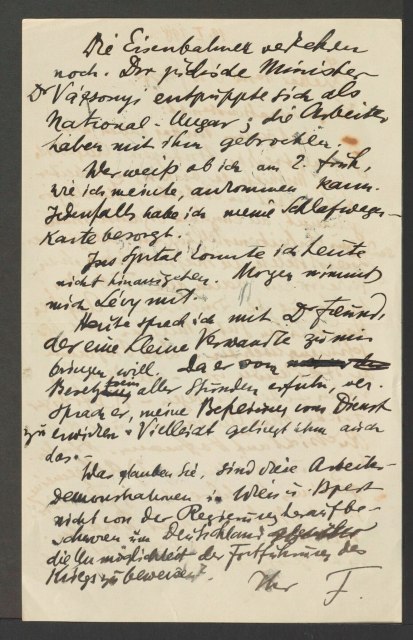 Die Eisenbahner verkehren
noch. Der jüdische Minister
Dr Vázsonyi entpuppte sich als
National-Ungar; die Arbeiter
haben mit ihm gebrochen.
Wer weiß ob ich am 2. früh,
wie ich meinte, ankommen kann.
Jedenfalls habe ich meine Schlafwagen-
karte besorgt.
Ins Spital konnte ich heute
nicht hinausgehen. Morgen nimmt
mich Lévy mit.
Heute sprach ich mit Dr Freund,
der eine kleine Verwandte zu mir
bringen will. Da er vom
aller Stunden erfuhr, ver-
sprach er, meine Befreiung vom Dienst
zu erwirken. Vielleicht gelingt ihm auch
das.-
Was glauben Sie, sind diese Arbeiter-
demonstrationen in Wien u. Bpest
nicht von der Regierung heraufbe-
schworen um Deutschland
die Unmöglichkeit der Fortführung des
Kriegs zu beweisen?
Ihr F.